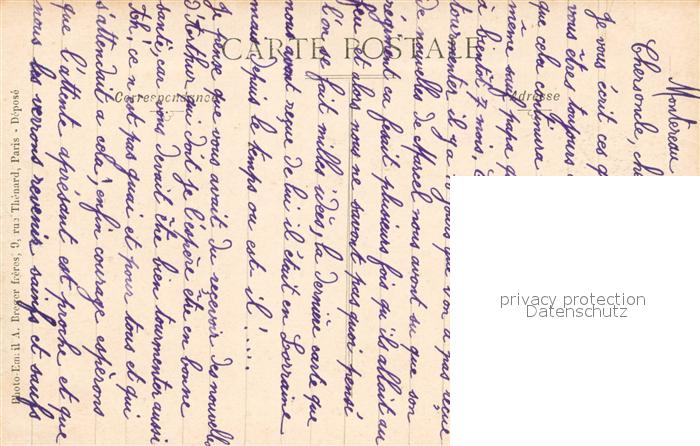 CARTE POSTALE
Correspondance
Adresse
Photo-Email A. Breger frères, 9, rue Thénard, Paris - Déposé
Montereau
Chersoule, ch
Je vous écit ces q
vous êtes toujours
que cela continuera
même sujt papa q
à bientôt 7 mois,
tourmenter il y a jours que l'on a pas reçue
de nouvelles de Marcel nous avont su que son
régiment en feuait plusieurs fois qu'ils allait au
feu et alors nous ne savont pas quoi pensé
l'on se fait milles idées, la dernière carte que
nous avont reçue de lui il était en Lorraine
mais depuis le temps ou est il!....
Je pense que vous avait du reçevoir des nouvelles
d'Arthur qui doit je l'espère être en bonne
santé, car vous devait être bien tourmenter aussi
Ah! ce n'est pas quai et pour tous et qui
s'attendait a cela, enfin courage espérons
que l'attente aprésant est proche et que
nous les verons revenir sainfs et saufs
privacy protection
Datenschutz